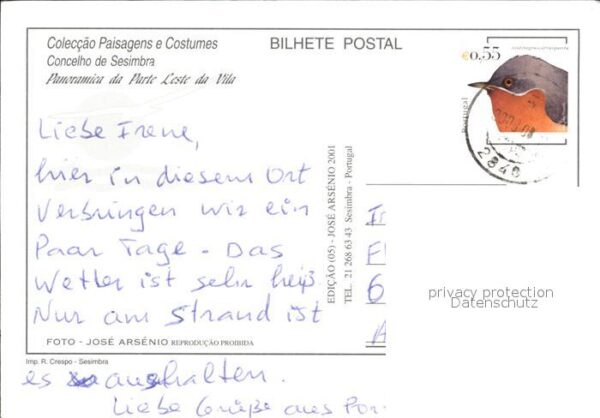 Colecção Paisagens e Costumes
Concelho de Sesimbra
Panoramica da Parte Leste da Vila
BILHETE POSTAL
€0,55
Portugal
2840
Liebe Irene,
hier in diesem Ort
verbringen wir ein
Paar Tage - Das
Wetter ist sehr heiß.
Nur am Strand ist
es auszuhalten.
Liebe Grüße aus Por-
EDIÇÃO (05) - JOSÉ ARSÉNIO 2001
TEL. 21 268 63 43 Sesimbra - Portugal
privacy protection
Datenschutz
FOTO - JOSÉ ARSÉNIO REPRODUÇÃO PROIBIDA
Imp. R. Crespo - Sesimbra